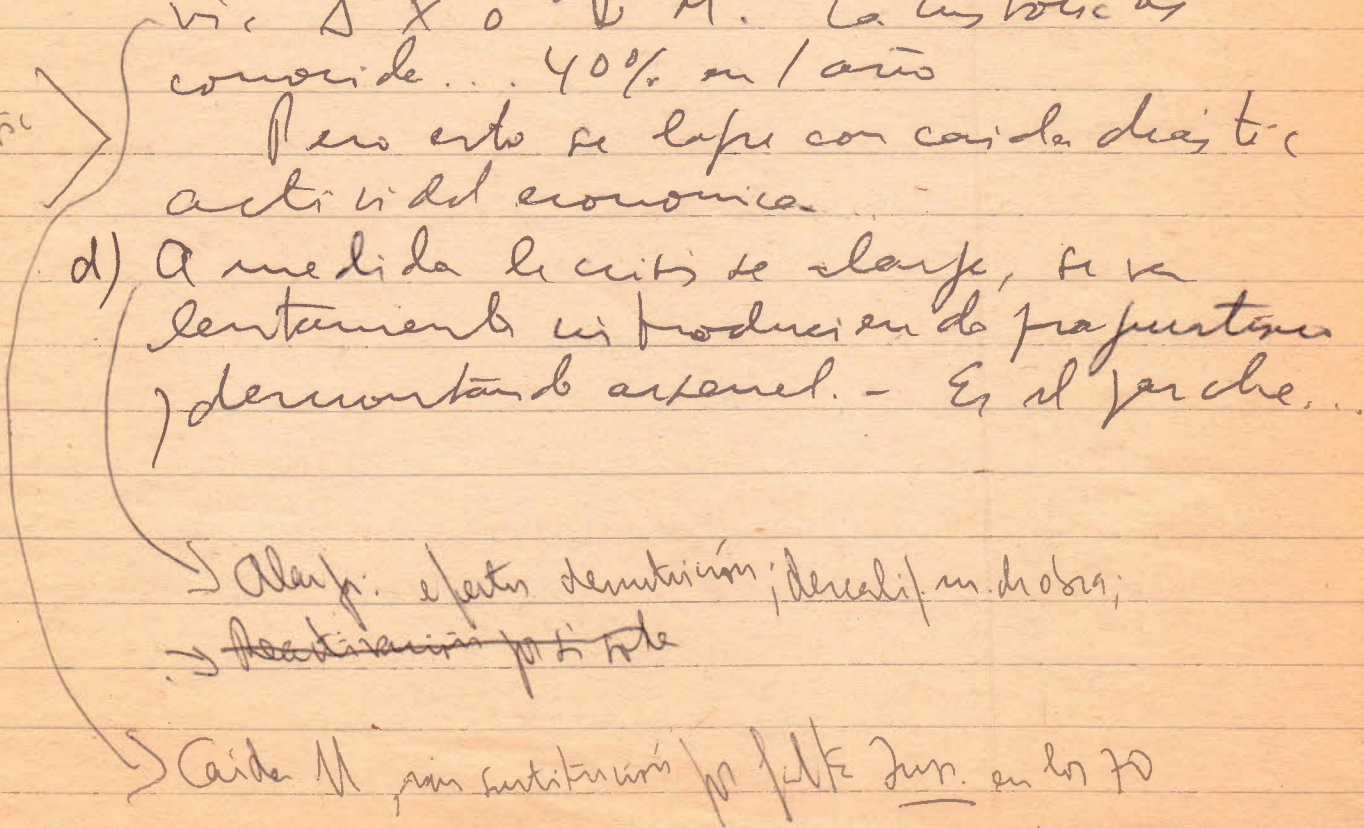 vic Δ X o ∇ M. La
conocida... 40% en 1 año
Pero esto se logra con caída drástic
actividad economica
d) A medida la crisis se alarga, se va
lentamente introduciendo pragmatismo
y desmontando arsenal. - Es el parche...
→ Alarg.: efectos desnutrición; descalif. m. de obra;
→ Reactivación por si sola
→ Caída M, sin sustitución por falta Inv. en los 70